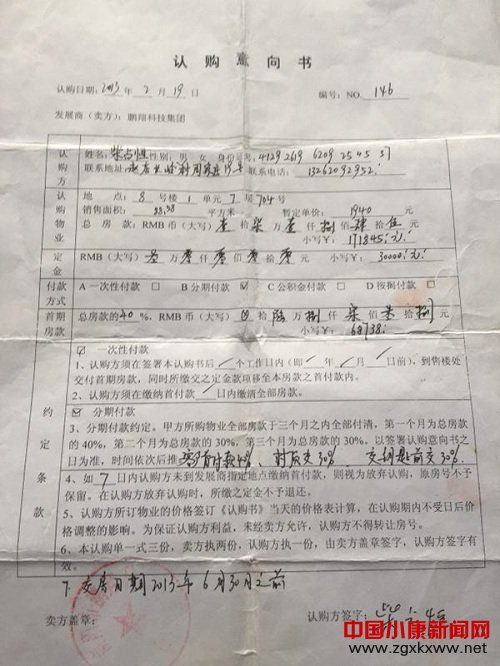 认 购 意 向 书
认购日期: 2013 年 2 月 19 日 编号: NO. 146
发展商（卖方）: 鹏翔科技集团
认购方
姓名: 柴占恒 性别: 男 女 身份证号: 4129 2619 6209 2545 37
联系地址: 联系电话: 13262092952
认购物业
地 点: 8 号楼 1 单元 7 层 704 号
销售面积: 88.58 平方米 暂定单价: 1940 元
物 总 房 款: RMB 币（大写）壹 拾 柒 万 壹 仟 捌 佰 肆 拾 伍 元
小写¥: 171845 元
定金
RMB（大写）叁 万 零 仟 零 佰 零 拾 零 元 小写¥: 30000 元
付款方式
A 一次性付款 B 分期付款 ✓ C 公积金付款 D 按揭付款
首期房款
总房款的 40 %, RMB 币（大写） 拾 陆 万 捌 仟 柒 佰 叁 拾 捌 元
小写¥: 68738
约定条款
一次性付款
1、认购方须在签署本认购书后 个工作日内（即 年 月 日前），到售楼处
交付首期房款，同时所缴交之定金款项移至本房款之首付款内。
2、认购方须在缴纳首付款 日内缴清全部房款。
☑ 分期付款
3、分期付款约定。甲方所购物业全部房款于三个月之内全部付清，第一个月为总房款
的 40%，第二个月为总房款的 30%，第三个月为总房款的 30%。以签署认购意向书之
日为准，时间依次后推 首付款40%、封顶交30% 交钥匙前交30%
4、如 7 日内认购方未到发展商指定地点缴纳首付款，则视为放弃认购，原房号不予
保留。在认购方放弃认购时，所缴之定金不予退还。
5、认购方所订物业的价格签订《认购书》当天的价格表计算，在认购期内不受日后价
格调整的影响。为保证认购方利益，未经卖方允许，认购方不得转让房号。
6、本认购单一式三份，卖方执两份，认购方执一份，由卖方盖章签字，认购方签字有
效。
7. 交房日期2013年6月30日之前
卖方盖章: 认购方签字:
中国小康新闻网
www.zgxkxww.net